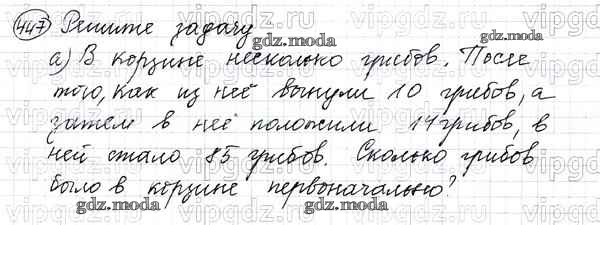 447 Решите задачу
а) В корзине несколько грибов. После
того, как из неё вынули 10 грибов, а
затем в неё положили 14 грибов, в
ней стало 85 грибов. Сколько грибов
было в корзине первоначально?
gdz.moda
gdz.moda
gdz.moda
gdz.moda
gdz.moda
vipgdz.moda